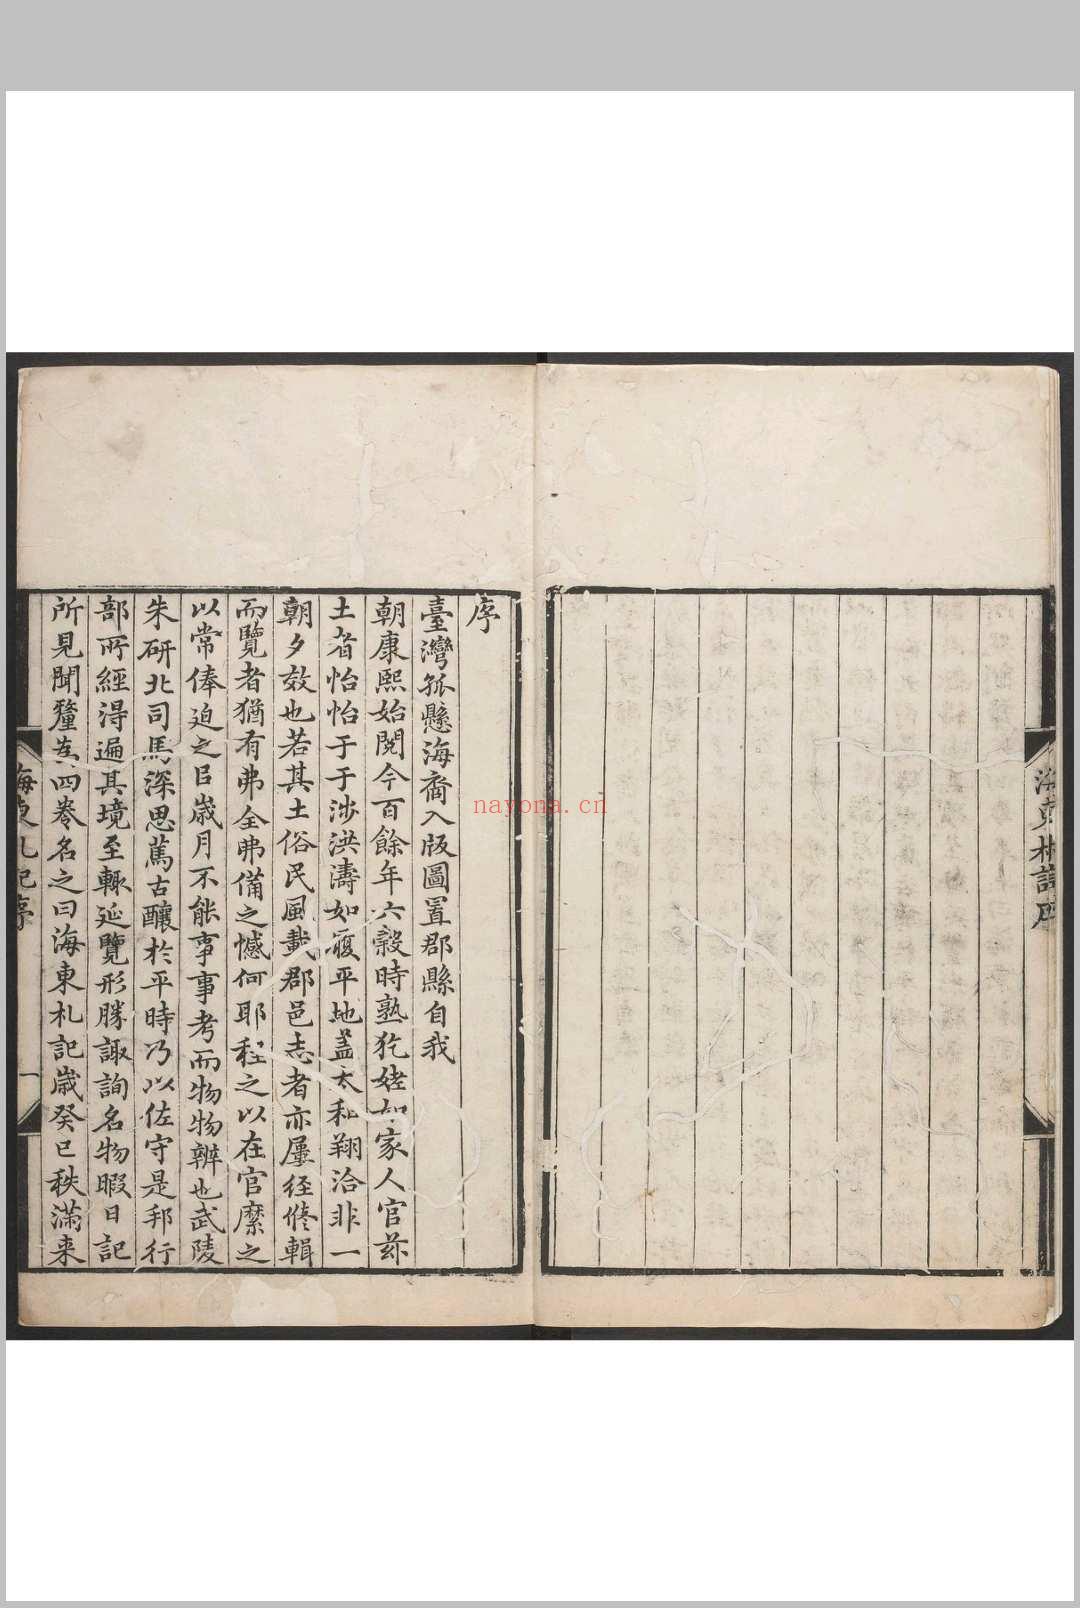 海東札記序
序
臺灣孤懸海裔入版圖置郡縣自我
朝康熙始閱今百餘年六穀時熟犵㹳如家人官茲
土者怡怡于于涉洪濤如履平地蓋太和翔洽非一
朝夕效也若其土俗民風載郡邑志者亦屢経修輯
而覽者猶有弗全弗備之憾何耶程之以在官縻之
以常俸迫之㠯歲月不能事事考而物物辨也武陵
朱研北司馬深思篤古釀於平時乃以佐守是邦行
部所經得遍其境至輙延覽形勝諏詢名物暇日記
所見聞釐為四卷名之曰海東札記歲癸巳秩滿来
海東札記序
一
nayona.cn